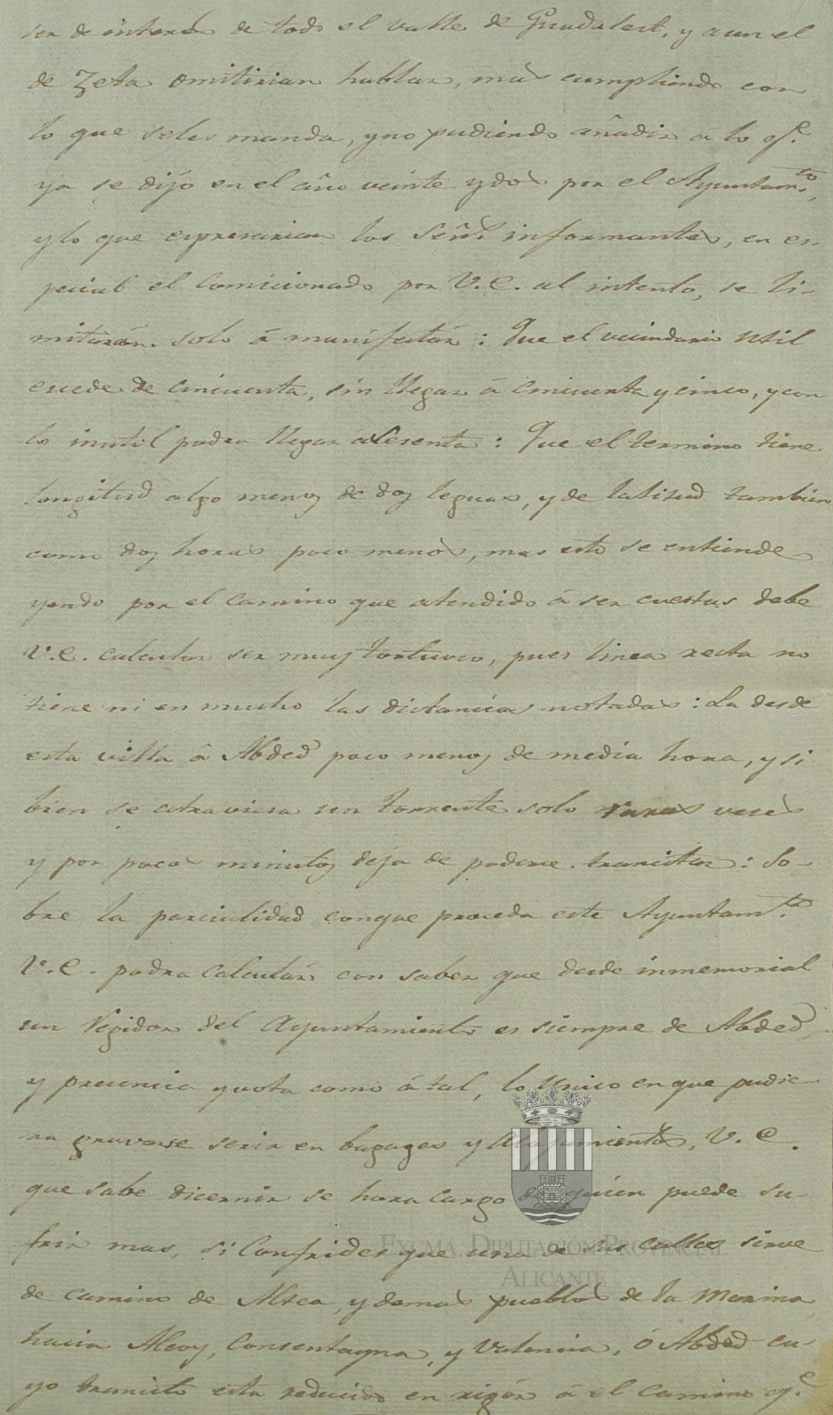 ser de interes de todo el valle de Guadalest, y aun el
de Zeta omitirian hablar, mas cumpliendo con
lo que seles manda, yno pudiendo añadir a lo qᵉ
ya se dijo en el año veinte ydos por el Ayuntamᵗᵒ,
ylo que expresarian los Señs informantes, en es
pecial el Comicionado por V.E. al intento, se li-
mitarán solo á manifestár: Que el vecindario util
excede de cincuenta, sin llegar á cincuenta y cinco, ycon
lo inutil podra llegar asesenta: Que el termino tiene
longitud algo menos de dos leguas, y de latitud tambien
como dos horas poco menos, mas esto se entiende
yendo por el camino que atendido á ser cuestas debe
V.E. calcular ser muy tortuoso, pues linea recta no
tiene ni en mucho las distancias notadas: La desde
esta villa á Abded poco menos de media hora, y si
bien se atraviesa un torrente solo raras veces
y por pocos minutos deja de poderse transitar: So-
bre la parcialidad conque proceda este Ayuntamᵗᵒ
V.E. podra calculár con saber que desde inmemorial
un Regidor del Ayuntamiento es siempre de Abded,
y presencia yvota como á tal, lo unico en que pudie-
ra gravarse seria en bagages y Alojamientos, V.E.
que sabe dicernir se hara cargo de quien puede su-
frir mas, si Confrides que una de sus calles sirve
de camino de Altea, ydemas pueblos de la Marina
hacia Alcoy, Consentayna, y Valencia, ó Abded cu-
yo transito esta reducido en rigór á el camino qᵉ
EXCMA. DIPUTACIÓN PROVINCIAL
ALICANTE